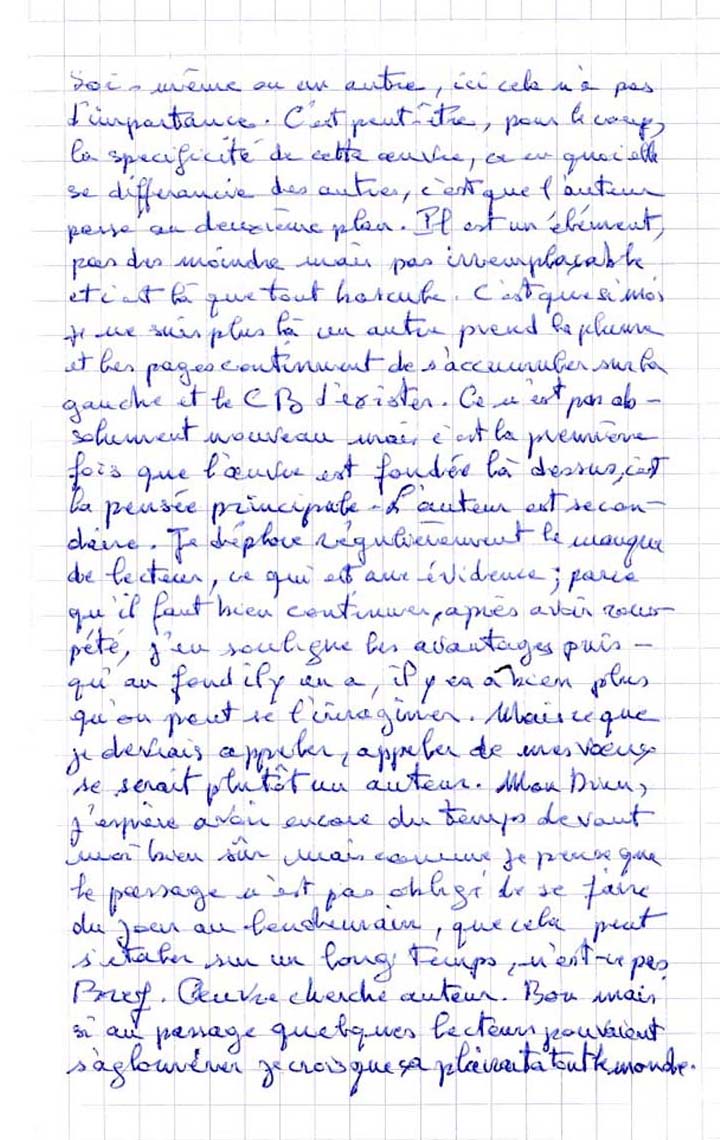 Soi-même ou un autre, ici cela n'a pas
d'importance. C'est peut-être, pour le coup,
la spécificité de cette œuvre, ce en quoi elle
se différencie des autres, c'est que l'auteur
passe au deuxième plan. Il est un élément,
pas des moindre mais pas irremplaçable
et c'est là que tout bascule. C'est que si moi
je ne suis plus là un autre prend la plume
et les pages continuent de s'accumuler sur la
gauche et le CB d'exister. Ce n'est pas ab-
solument nouveau mais c'est la première
fois que l'œuvre est fondée là dessus, c'est
la pensée principale. L'auteur est secon-
daire. Je déplore régulièrement le manque
de lecteur, ce qui est une évidence ; parce
qu'il faut bien continuer, après avoir rous-
pété, j'en souligne les avantages puis-
qu'au fond il y en a, il y en a bien plus
qu'on peut se l'imaginer. Mais ce que
je devrais appeler, appeler de mes vœux
se serait plutôt un auteur. Mon Dieu,
j'espère avoir encore du temps devant
moi bien sûr mais comme je pense que
le passage n'est pas obligé de se faire
du jour au lendemain, que cela peut
s'étaler sur un long temps, n'est-ce pas
Bref. Œuvre cherche auteur. Bon mais
si au passage quelques lecteurs pouvaient
s'aglomérer je crois que ça plairait à tout le monde.